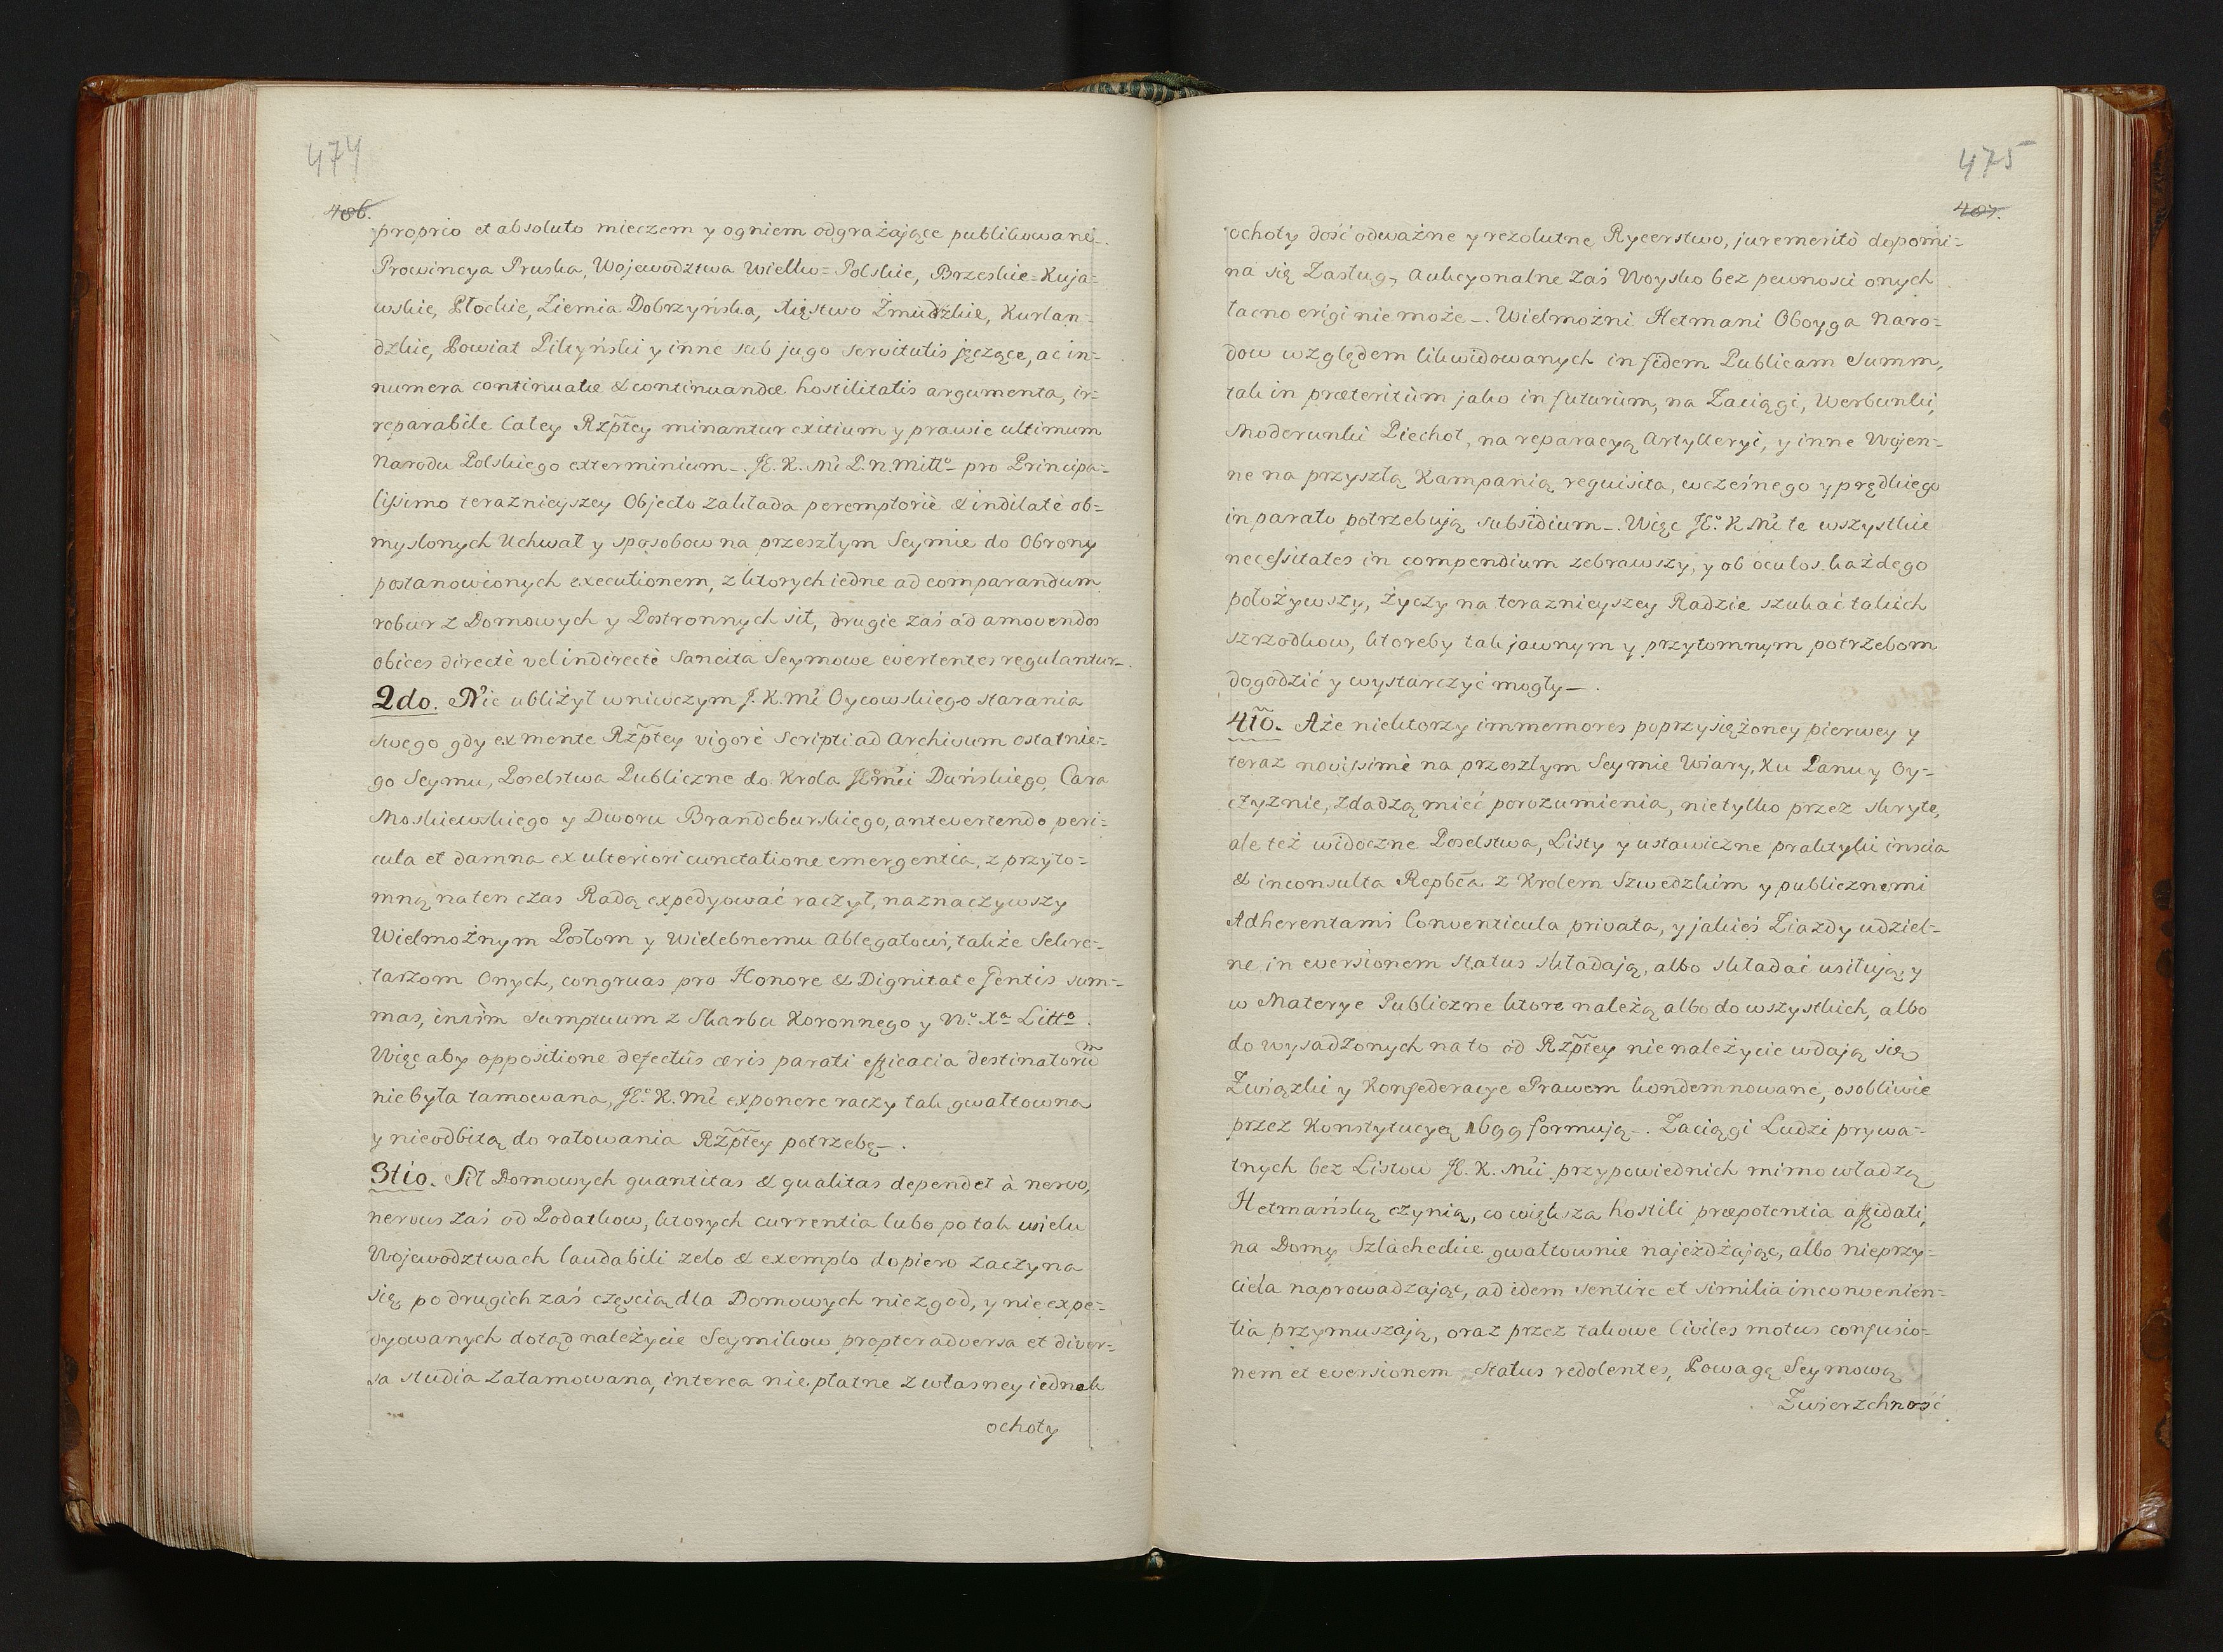 474
486.
proprio et absoluto mieczem y ogniem odgrażające publikowane.
Prowincya Pruska, Wojewodztwa Wielko=Polskie, Brzeskie=Kuja=
wskie, Płockie, Ziemia Dobrzyńska, Xięstwo Żmudzkie, Kurlan=
dzkie, Powiat Piltyński y inne sub jugo servitutis jęczące, ac in=
numera continuatæ & continuandæ hostilitatis argumenta, ir=
reparabile Całey Rzptey minantur exitium y prawie ultimum
Narodu Polskiego exterminium_. JE. K. Mć P. n. Mittо_ pro Principa=
lissimo teraznieyszey Objecto zakłada peremptoriè & indilatè ob=
myslonych Uchwał y sposobow na przeszłym Seymie do Obrony
postanowionych executionem, z ktorych iedne ad comparandum
robur z Domowych y Postronnych sił, drugie zaś ad amovendos
obices directè vel indirectè Sancita Seymowe evertentes regulantur_.
2do. Nic ubliżył w niwczym J. K. Mć Oycowskiego starania
swego gdy ex mente Rzptey vigorè Scripti ad Archivum ostatnie=
go Seymu, Poselstwa Publiczne do Krola JEmći Duńskiego, Cara
Moskiewskiego y Dworu Brandeburskiego, antevertendo peri=
cula et damna ex ulteriori cunctatione emergentia, z przyto=
mną na ten czas Radą expedyować raczył, naznaczywszy
Wielmożnym Posłom y Wielebnemu Ablegatowi, także Sekre=
tarzom Onych, congruas pro Honore & Dignitate Gentis sum=
mas, invim sumptuum z Skarbu Koronnego y W.o X.a Litto.
Więc aby oppositione defectûs æris parati efficacia destinatorũ
nie była tamowana, JE.o K. Mć exponere raczy tak gwałtowną
y nieodbitą do ratowania Rzptey potrzebę_.
3tio. Sił Domowych quantitas & qualitas dependet à nervo,
nervus zaś od Podatkow, ktorych currentia lubo po tak wielu
Wojewodztwach laudabili zelo & exemplo dopiero zaczyna
się, po drugich zaś częścią dla Domowych niezgod, y nie expe=
dyowanych dotąd należycie Seymikow propter adversa et diver=
sa studia zatamowana, interea nie płatne z własney iednak
ochoty
475
487.
ochoty dość odważne y rezolutne Rycerstwo, jure merito dopomi=
na się Zasług, Aukcyonalne zaś Woysko bez pewnosci onych
łacno erigi nie może_. Wielmożni Hetmani Oboyga Naro=
dow względem likwidowanych in fidem Publicam Summ,
tak in præteritùm jako in futurùm, na Zaciągi, Werbunki,
Moderunki Piechot, na reparacyą Artylleryi, y inne Wojen=
ne na przyszłą Kampanią requisita, wcześnego y prędkiego
in parato potrzebują subsidium_. Więc JE.o K Mć te wszystkie
necessitates in compendium zebrawszy, y ob oculos każdego
położywszy, życzy na teraznieyszey Radzie szukać takich
szrzodkow, ktoreby tak jawnym y przytomnym potrzebom
dogodzić y wystarczyć mogły_.
4tò. Aże niektorzy immemores poprzysiężoney pierwey y
teraz novissimè na przeszłym Seymie Wiary, Ku Panu y Oy=
czyznie, zdadzą mieć porozumienia, nietylko przez skryte,
ale też widoczne Poselstwa, Listy y ustawiczne praktyki inscia
& inconsulta Repbca z Krolem Szwedzkim y publicznemi
Adherentami Conventicula privata, y jakieś Ziazdy udziel=
ne, in eversionem status składają, albo składać usiłują y
w Materye Publiczne ktore należą albo do wszystkich, albo
do wysadzonych na to od Rzptey nie należycie wdają się
Związki y Konfederacye Prawem kondemnowane, osobliwie
przez Konstytucyą 1699 formują_. Zaciągi Ludzi prywa=
tnych bez Listow JE. K. Mći przypowiednich mimo władzą
Hetmańską czynią, co większa hostili præpotentia affidati,
na Domy Szlacheckie gwałtownie najeżdżając, albo nieprzy=
ciela naprowadzając, ad idem sentire et similia inconvenien=
tia przymuszają, oraz przez takowe Civiles motus confusio=
nem et eversionem status redolentes, Powagę Seymową
Zwierzchność